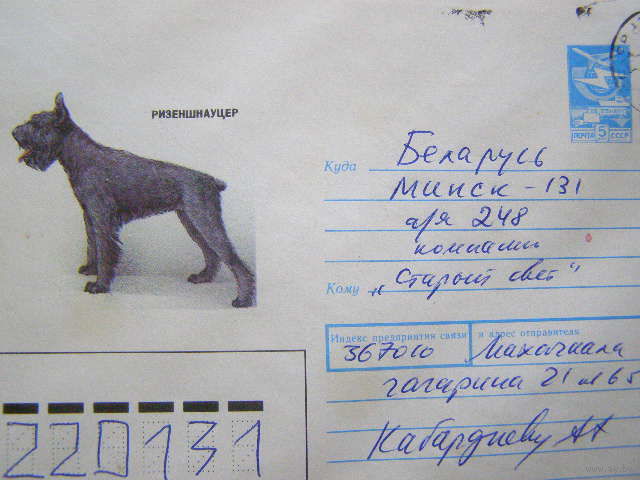 РИЗЕНШНАУЦЕР
ПОЧТА 5 СССР
Куда Беларусь
Минск - 131
а/я 248
компании
Кому „Старый свет"
Индекс предприятия связи и адрес отправителя
367010 Махачкала
гагарина 21
Кабардиеву АА
220131